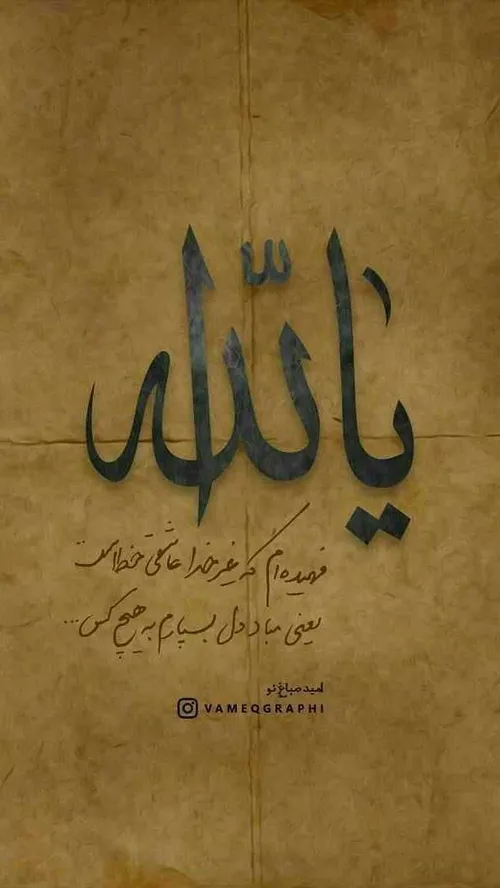 یا الله
فهمیده‌ام که غیر خدا عاشقی خطاست
یعنی مباد دل بسپارم به هیچ کس...
امید صباغ نو
VAMEQGRAPHI